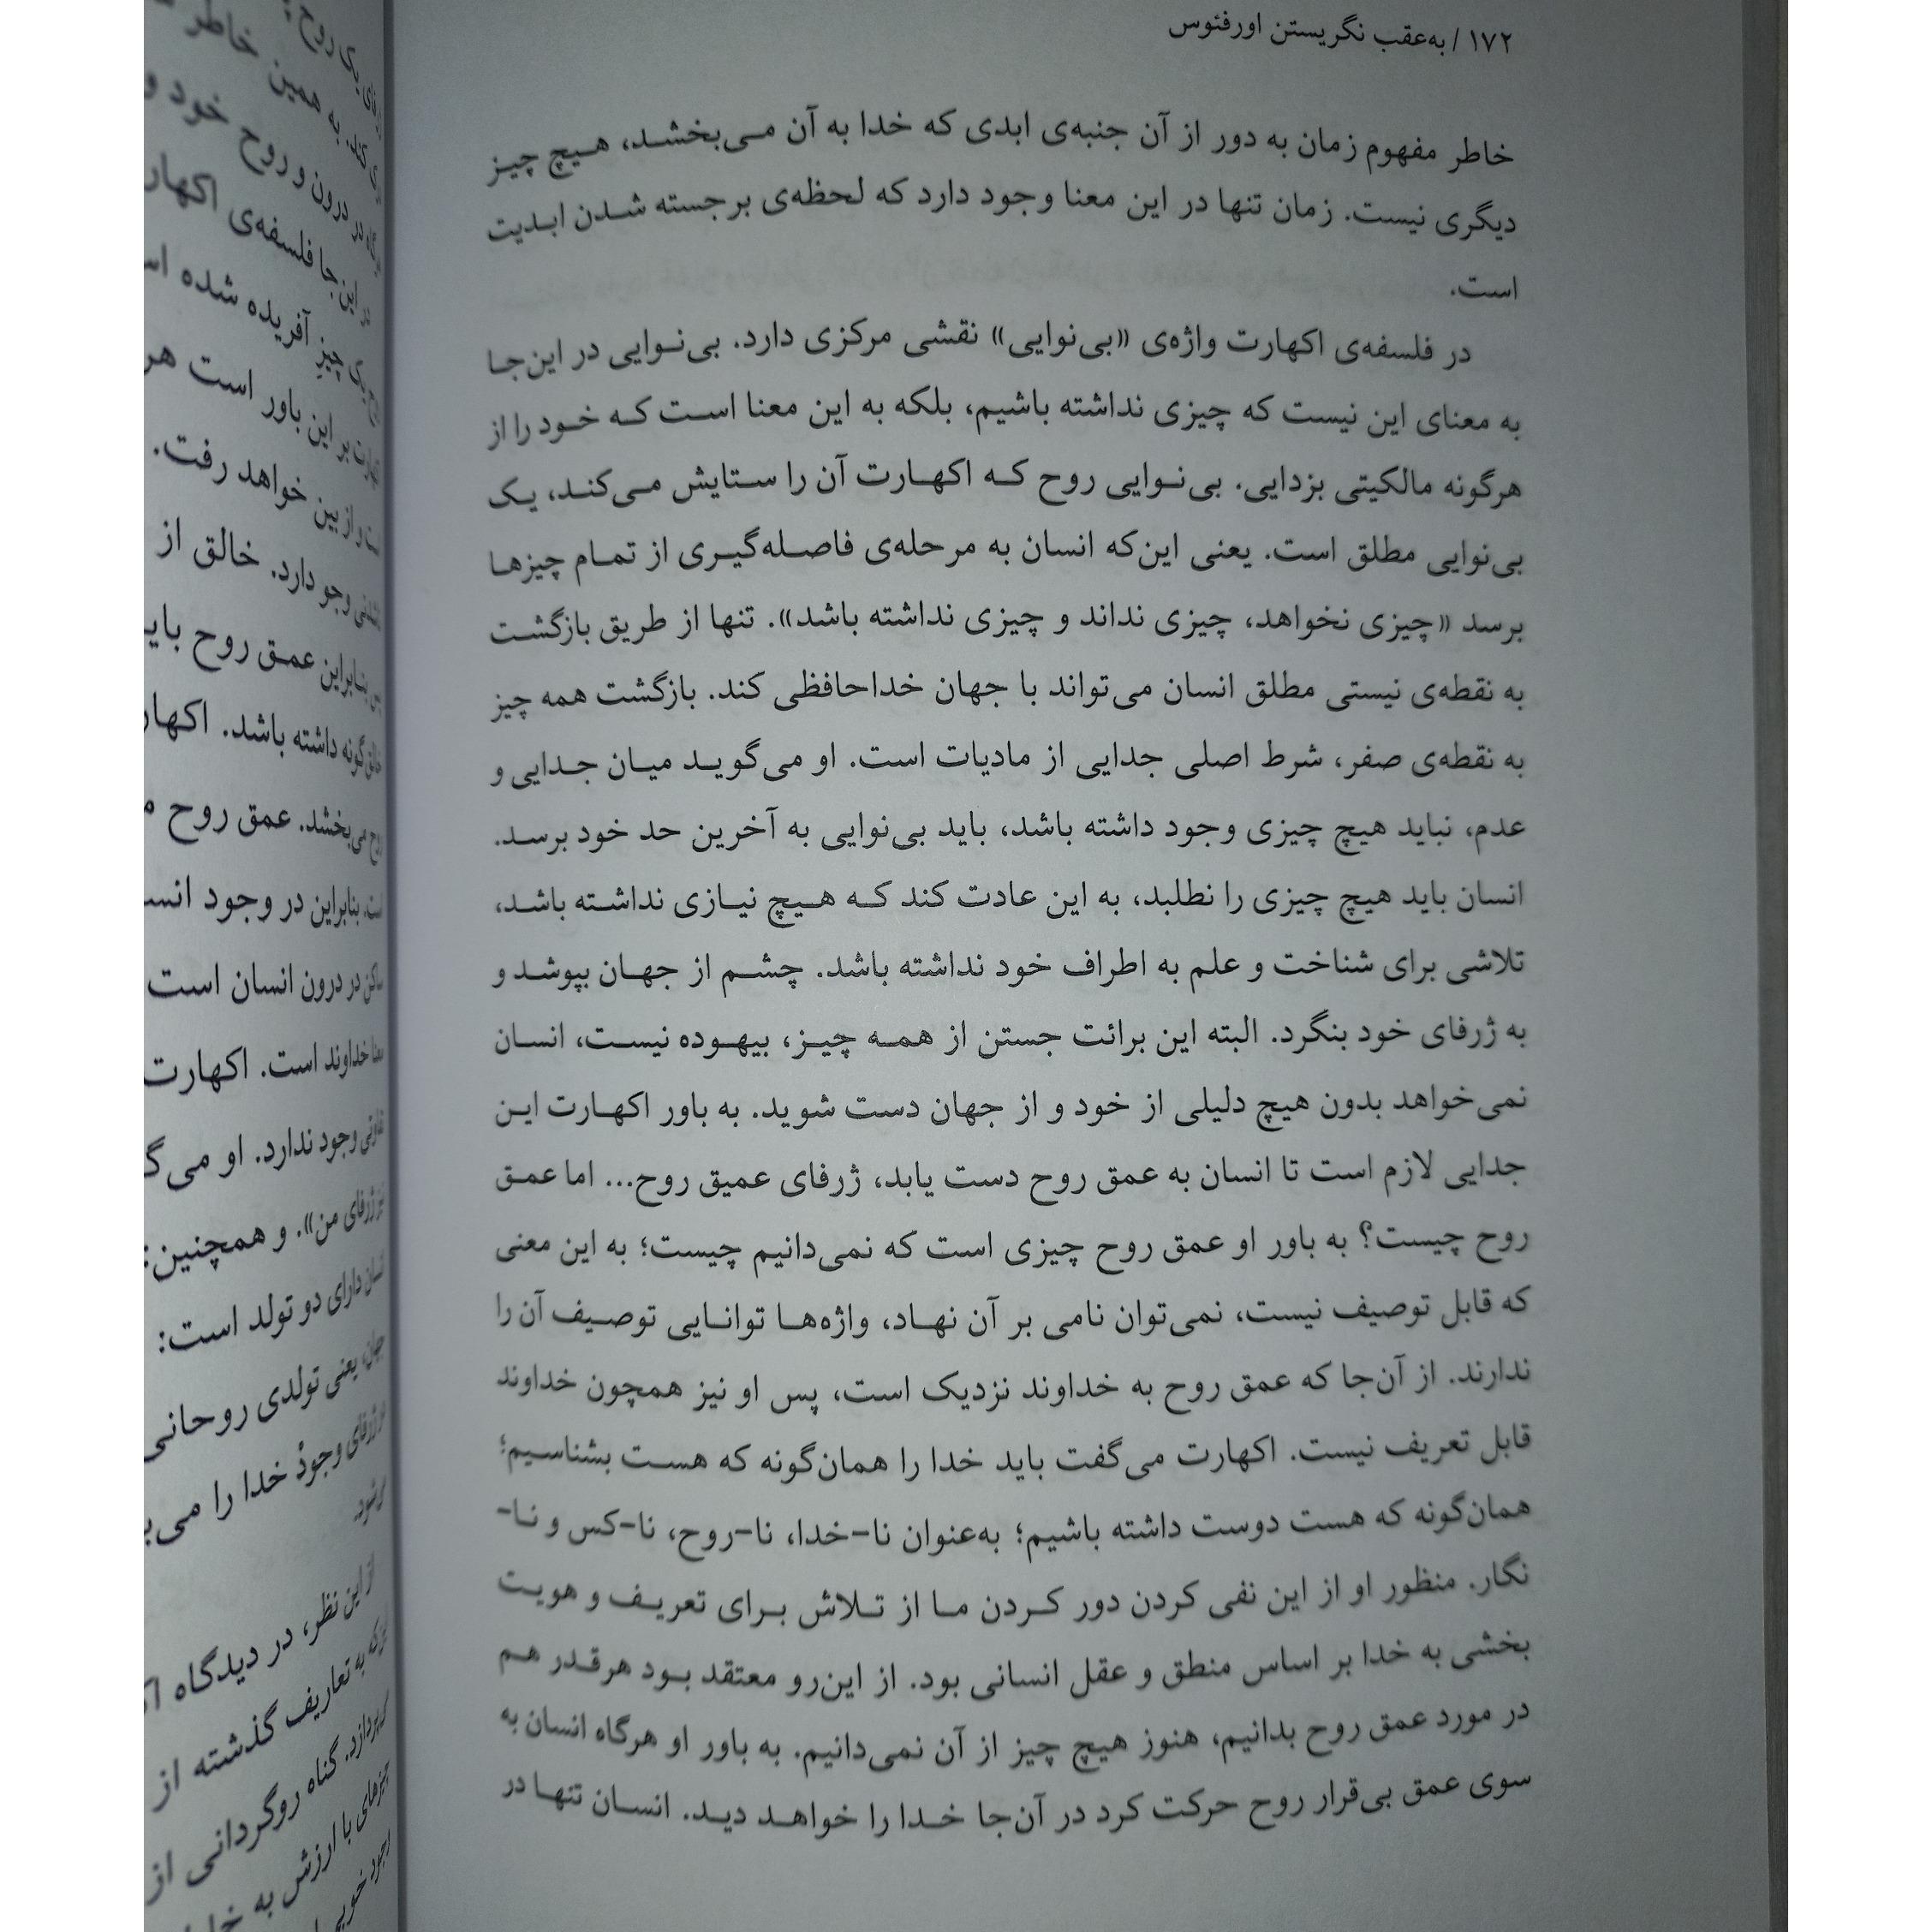 ۱۷۲ / به‌عقب نگریستن اورفئوس
خاطر مفهوم زمان به دور از آن جنبه‌ی ابدی که خدا به آن می‌بخشد، هیچ چیز
دیگری نیست. زمان تنها در این معنا وجود دارد که لحظه‌ی برجسته شدن ابدیت
است.
در فلسفه‌ی اکهارت واژه‌ی «بی‌نوایی» نقشی مرکزی دارد. بی‌نوایی در این‌جا
به معنای این نیست که چیزی نداشته باشیم، بلکه به این معنا است که خود را از
هرگونه مالکیتی بزدایی. بی‌نوایی روح که اکهارت آن را ستایش می‌کند، یک
بی‌نوایی مطلق است. یعنی این‌که انسان به مرحله‌ی فاصله‌گیری از تمام چیزها
برسد «چیزی نخواهد، چیزی نداند و چیزی نداشته باشد». تنها از طریق بازگشت
به نقطه‌ی نیستی مطلق انسان می‌تواند با جهان خداحافظی کند. بازگشت همه چیز
به نقطه‌ی صفر، شرط اصلی جدایی از مادیات است. او می‌گوید میان جدایی و
عدم، نباید هیچ چیزی وجود داشته باشد، باید بی‌نوایی به آخرین حد خود برسد.
انسان باید هیچ چیزی را نطلبد، به این عادت کند که هیچ نیازی نداشته باشد،
تلاشی برای شناخت و علم به اطراف خود نداشته باشد. چشم از جهان بپوشد و
به ژرفای خود بنگرد. البته این برائت جستن از همه چیز، بیهوده نیست، انسان
نمی‌خواهد بدون هیچ دلیلی از خود و از جهان دست شوید. به باور اکهارت این
جدایی لازم است تا انسان به عمق روح دست یابد، ژرفای عمیق روح... اما عمق
روح چیست؟ به باور او عمق روح چیزی است که نمی‌دانیم چیست؛ به این معنی
که قابل توصیف نیست، نمی‌توان نامی بر آن نهاد، واژه‌ها توانایی توصیف آن را
ندارند. از آن‌جا که عمق روح به خداوند نزدیک است، پس او نیز همچون خداوند
قابل تعریف نیست. اکهارت می‌گفت باید خدا را همان‌گونه که هست بشناسیم؛
همان‌گونه که هست دوست داشته باشیم؛ به‌عنوان نا-خدا، نا-روح، نا-کس و نا-
نگار. منظور او از این نفی کردن دور کردن ما از تلاش برای تعریف و هویت
بخشی به خدا بر اساس منطق و عقل انسانی بود. از این‌رو معتقد بود هرقدر هم
در مورد عمق روح بدانیم، هنوز هیچ چیز از آن نمی‌دانیم. به باور او هرگاه انسان به
سوی عمق بی‌قرار روح حرکت کرد در آن‌جا خدا را خواهد دید. انسان تنها در
به همین خاطر
در درون و روح خود و
این‌جا فلسفه‌ی
یک چیز آفریده شده
بر این باور است هر
و از بین خواهد رفت.
وجو دارد. خالق از
بنابراین عمق روح
گونه داشته باشد.
می‌بخشد. عمق روح
بنابراین در وجود
در درون انسان است
خداوند است. اکهارت
وجود ندارد. او
ژرفای من». و همچنین:
دارای دو تولد است:
یعنی تولدی روحانی
ژرفای وجود خدا را
از این نظر، در دیدگاه
به تعاریف گذشته از
گناه روگردانی از
چیزهای با ارزش به